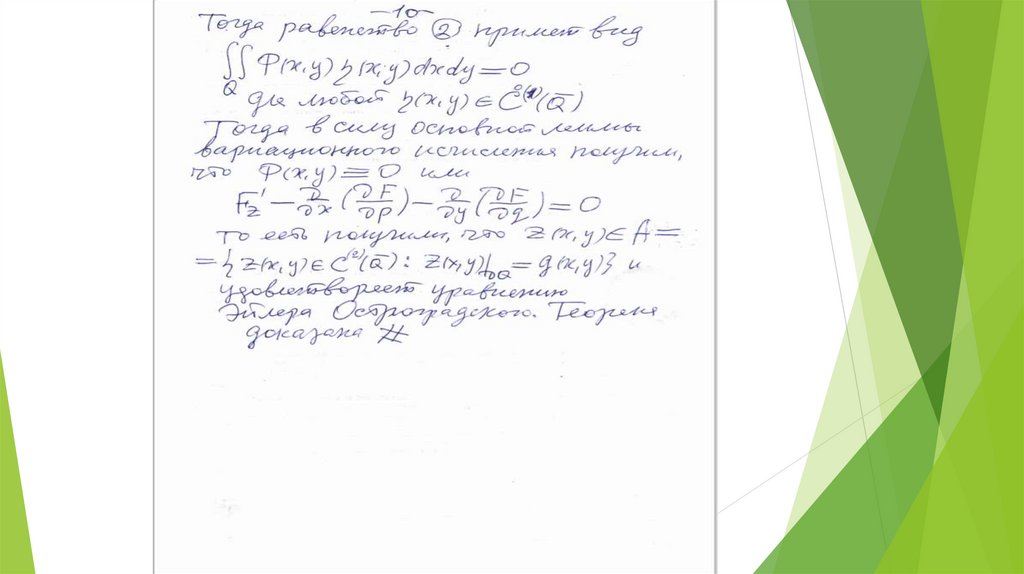 -10-
Тогда равенство ② примет вид
∬ Φ(x,y) η(x,y) dxdy = 0
Q
для любой η(x,y) ∈ C°⁽¹⁾(Q̄)
Тогда в силу основной леммы
вариационного исчисления получим,
что Φ(x,y) ≡ 0 или
F'z − ∂/∂x (∂F/∂p) − ∂/∂y (∂F/∂q) = 0
то есть получили, что z(x,y) ∈ A =
= { z(x,y) ∈ C⁽²⁾(Q̄) : z(x,y)|∂Q = g(x,y)} и
удовлетворяет уравнению
Эйлера Остроградского. Теорема
доказана #